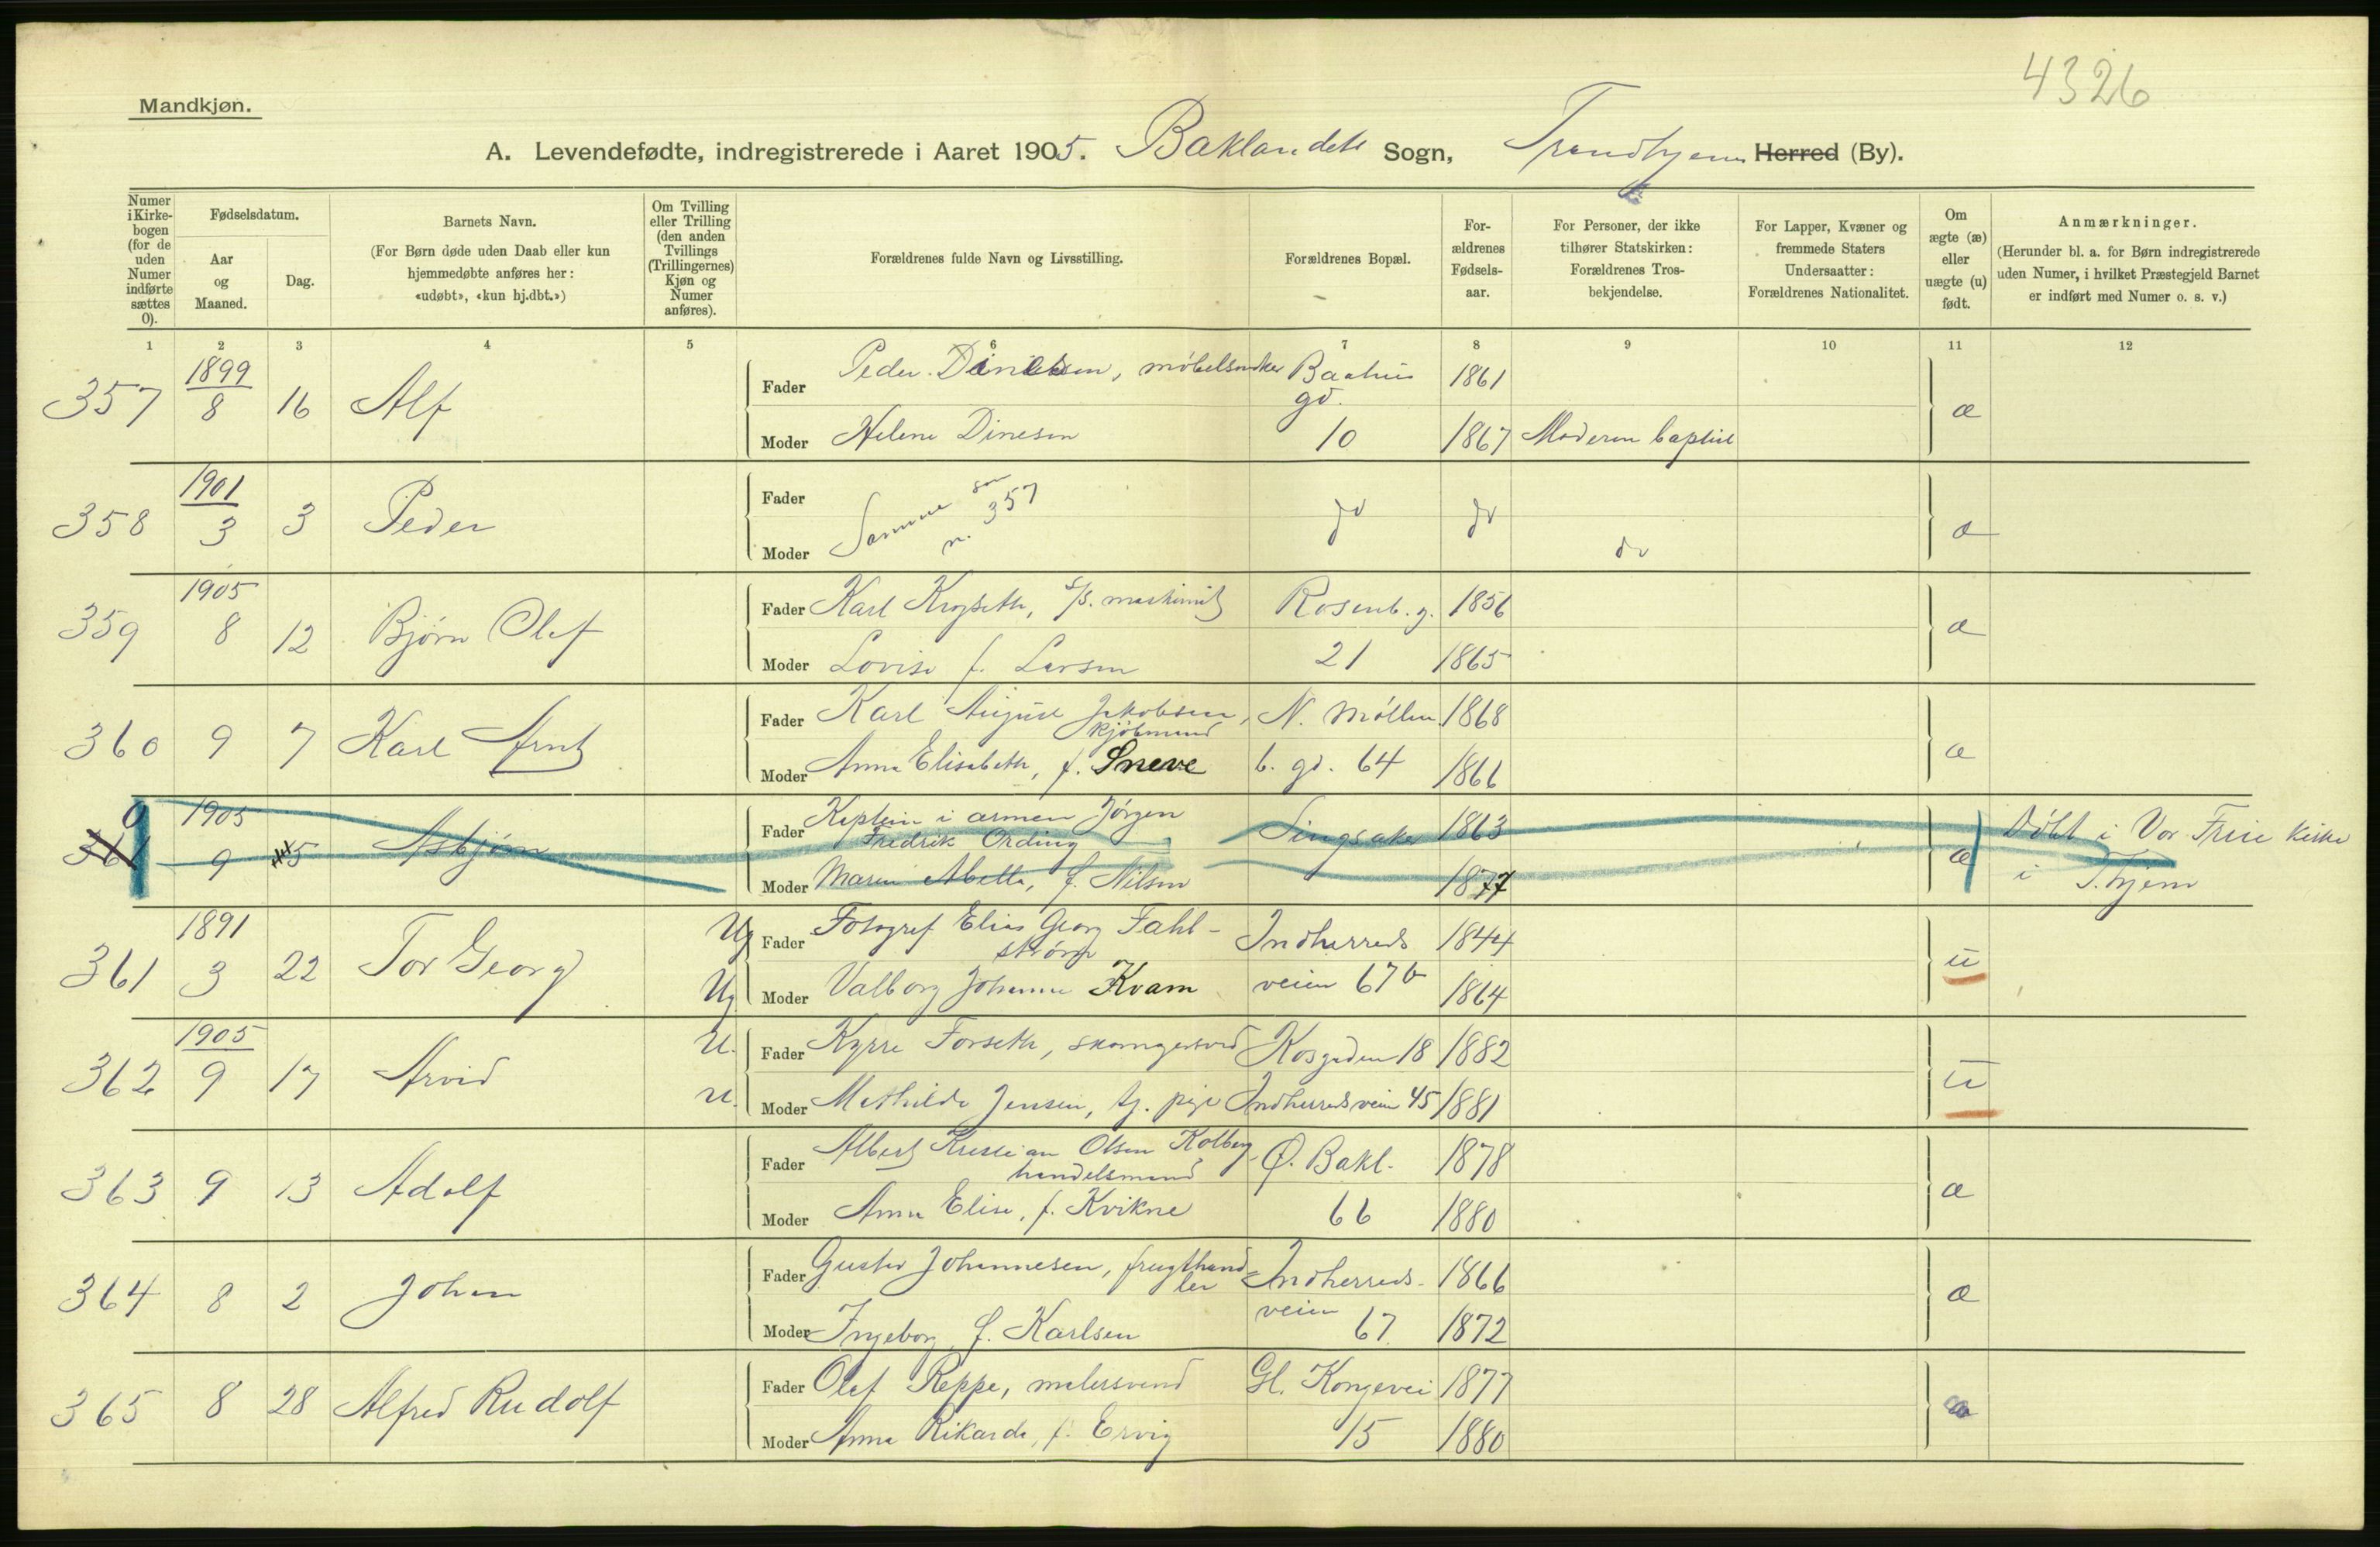 4326
Mandkjøn.
A. Levendefødte, indregistrerede i Aaret 1905. Baklandets Sogn, Trondhjems Herred (By).
Numer i Kirke-bogen (for de uden Numer indførte sættes 0).
Fødselsdatum.
Aar og Maaned.
Dag.
Barnets Navn.
(For Børn døde uden Daab eller kun
hjemmedøbte anføres her:
«udøbt», «kun hj.dbt.»)
Om Tvilling eller Trilling (den anden Tvillings (Trillingernes) Kjøn og Numer anføres).
Forældrenes fulde Navn og Livsstilling.
Forældrenes Bopæl.
For-ældrenes Fødsels-aar.
For Personer, der ikke
tilhører Statskirken:
Forældrenes Tros-
bekjendelse.
For Lapper, Kvæner og
fremmede Staters
Undersaatter:
Forældrenes Nationalitet.
Om ægte (æ) eller uægte (u) født.
Anmærkninger.
(Herunder bl. a. for Børn indregistrerede
uden Numer, i hvilket Præstegjeld Barnet
er indført med Numer o. s. v.)
1 2 3 4 5 6 7 8 9 10 11 12
357 1899 8 16 Alf
Fader Peder Dinesen, møbelsnedker 1861
gd.
Moder Helene Dinesen 10 1867 Moderen baptist
æ
358 1901 3 3 Peder
Fader Samme som
Moder n. 357
do do do
æ
359 1905 8 12 Bjørn Olaf
Fader Karl Krogseth, s/s. maskinist Rosenb. g. 1856
Moder Lovise f. Larsen 21 1865
æ
360 9 7 Karl Arnt
Fader Karl August Jakobsen, N. Møllen 1868
kjøbmand
Moder Anna Elisabeth, f. Sneve b. gd. 64 1866
æ
0 361 1905 9 5 Asbjørn
Fader Kaptein i armeen Jörgen Singsaker 1863
Fredrik Ording
Moder Maren Abella, f. Nilsen 1877
æ
Döbt i Vor Frue kirke
i T.hjem
361 1891 3 22 Tor Georg
Ug Fader Fotograf Elias Georg Fahl- Indherreds 1844
strøm
Ug. Moder Valborg Johanne Kvam veien 67b 1864
u
362 1905 9 17 Arvid
U. Fader Kyrre Forseth, skomagersvend 18 1882
U. Moder Mathilde Jensen, tj. pige Indherredsveien 45 1881
u
363 9 13 Adolf
Fader Albert Kristian Olsen Kolberg Ø. Bakl. 1878
handelsmand
Moder Anna Elise, f. Kvikne 66 1880
æ
364 8 2 Johan
Fader Gustav Johannesen, frugthand- Indherreds- 1866
ler
veien
Moder Ingeborg f. Karlsen 67 1872
æ
365 8 28 Alfred Rudolf
Fader Olaf Reppe, malersvend Gl. Kongevei 1877
Moder Anna Rikarda, f. Ervig 15 1880
æ